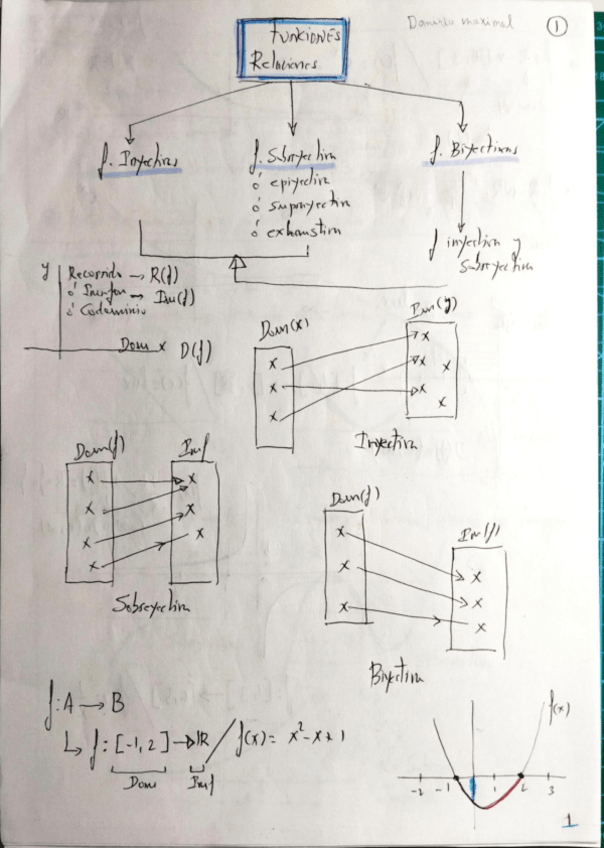 Dominio maximal
1
FUNCIONES
Relaciones
f. Inyectivas
f. Sobreyectiva
ó epiyectiva
ó suprayectiva
ó exhaustiva
f. Biyectivas
f inyectiva y
Sobreyectiva
y
Recorrido → R(f)
ó Imagen → Im(f)
ó Codominio
Dom x D(f)
Dom(x)
Im(y)
x
x
x
x
x
x
x
x
Inyectiva
Dom(f)
Imf
x
x
x
x
x
x
x
Sobreyectiva
Dom(f)
Im(f)
x
x
x
x
x
x
Biyectiva
f: A → B
f: [-1, 2] → IR / f(x) = x²-x+1
Dom
Imf
f(x)
-2 -1 1 2 3
1